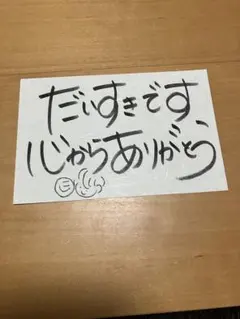 だいすきです、
心からありがとう